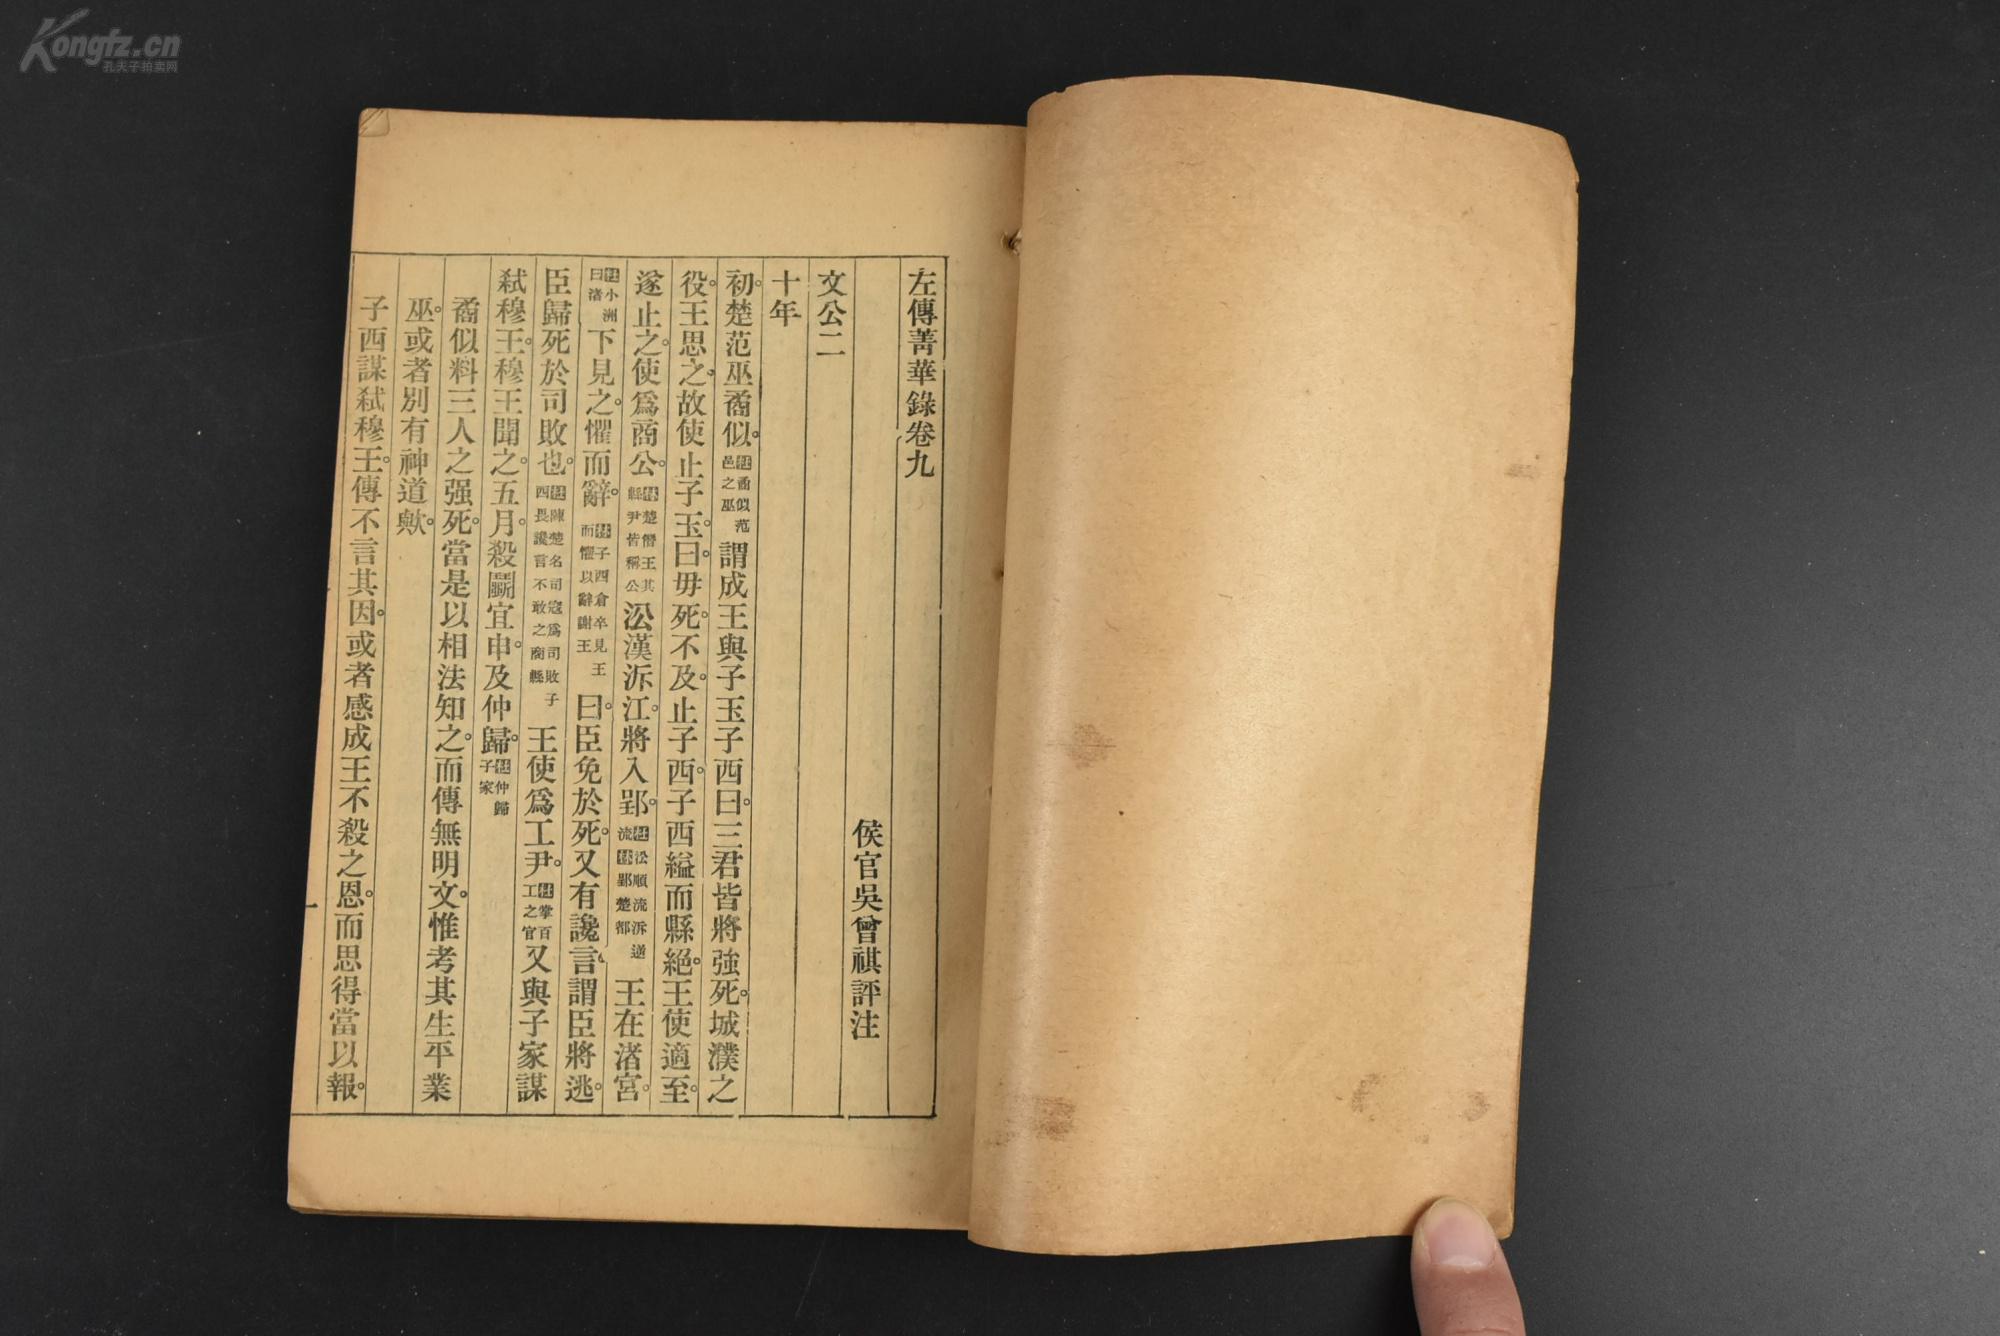 左傳菁華錄卷九
侯官吳曾祺評注
文公二
十年
初。楚范巫矞似。杜矞似范邑之巫謂成王與子玉子西曰。三君皆將強死。城濮之
役。王思之。故使止子玉。曰。毋死。不及。止子西。子西縊而縣絕。王使適至。
遂止之。使爲商公。林楚僭王其縣尹皆稱公㳂漢泝江。將入郢。杜㳂順流泝逆流林郢楚都王在渚宮。
杜小洲曰渚下見之。懼而辭。林子西倉卒見王而懼以辭謝王曰。臣免於死。又有讒言。謂臣將逃。
臣歸死於司敗也。杜陳楚名司寇爲司敗子西畏讒言不敢之商縣王使爲工尹。杜掌百工之官又與子家謀
弒穆王。穆王聞之。五月。殺鬭宜申及仲歸。杜仲歸子家
矞似料三人之强死。當是以相法知之。而傳無明文。惟考其生平業
巫。或者別有神道歟。
子西謀弒穆王。傳不言其因。或者感成王不殺之恩。而思得當以報。
一
Kongfz.cn
孔夫子拍卖网